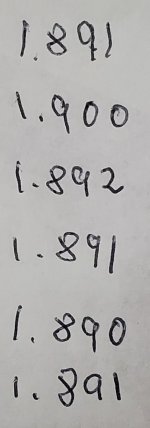 1.891
1.900
1.892
1.891
1.890
1.891